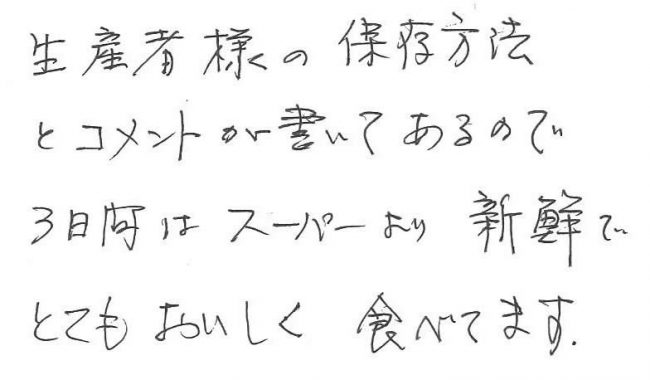 生産者様の保存方法
とコメントが書いてあるので
3日間はスーパーより新鮮で
とてもおいしく食べてます.